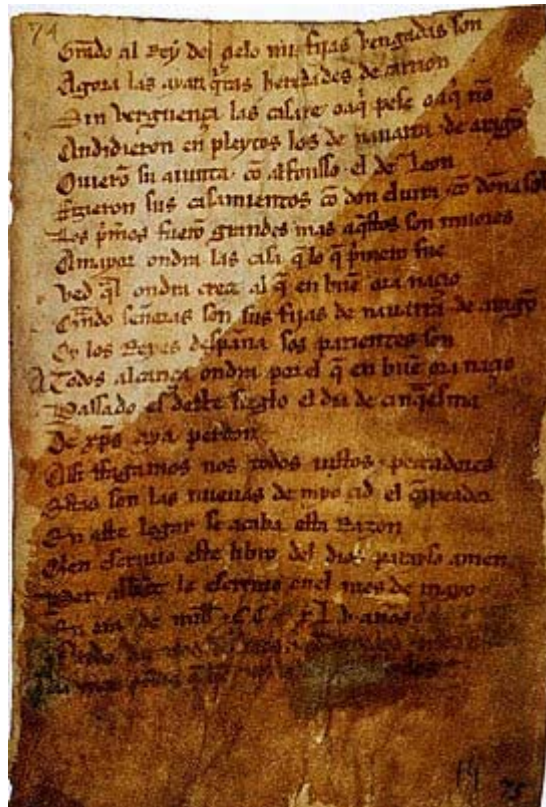 74
Grado al Rey del çielo mis fijas vengadas son
Agora las ayan q̃tas heredades de carrion
Sin verguença las casare o aq̃ pese o aq̃ nõ
Andidieron en pleytos los de nauarra τ de aragõ
Ouierõ su aiunta cõ alfonsso el de Leon
Fizieron sus casamientos cõ don eluira τ cõ doña sol
Los p̃meros fuerõ grandes mas aq̃stos son miiores
Amayor ondra las casa q̃ lo q̃ p̃mero fue
Ved q̃l ondra creçe al q̃ en buẽ ora naçio
Q̃ndo señoras son sus fijas de nauarra τ de aragõ
Oy los Reyes despaña sos parientes son
A Todos alcança ondra por el q̃ en buẽ ora naçio
Passado es deste sieglo el dia de cinq̃esma
De xp̃s aya perdon
Assi ffagamos nos todos iustos τ peccadores
Estas son las nueuas de myo çid el cãpeador
En este logar se acaba esta Razon
Quien escriuio este libro del dios parayso amen
Per abbat le escriuio enel mes de mayo
En era de mill τ CC XL V años
75